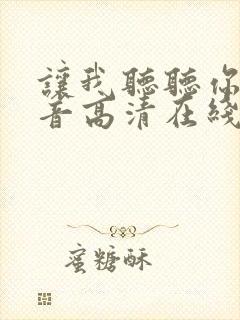 讓我聽聽你
音高清在綫
蜜糖酥